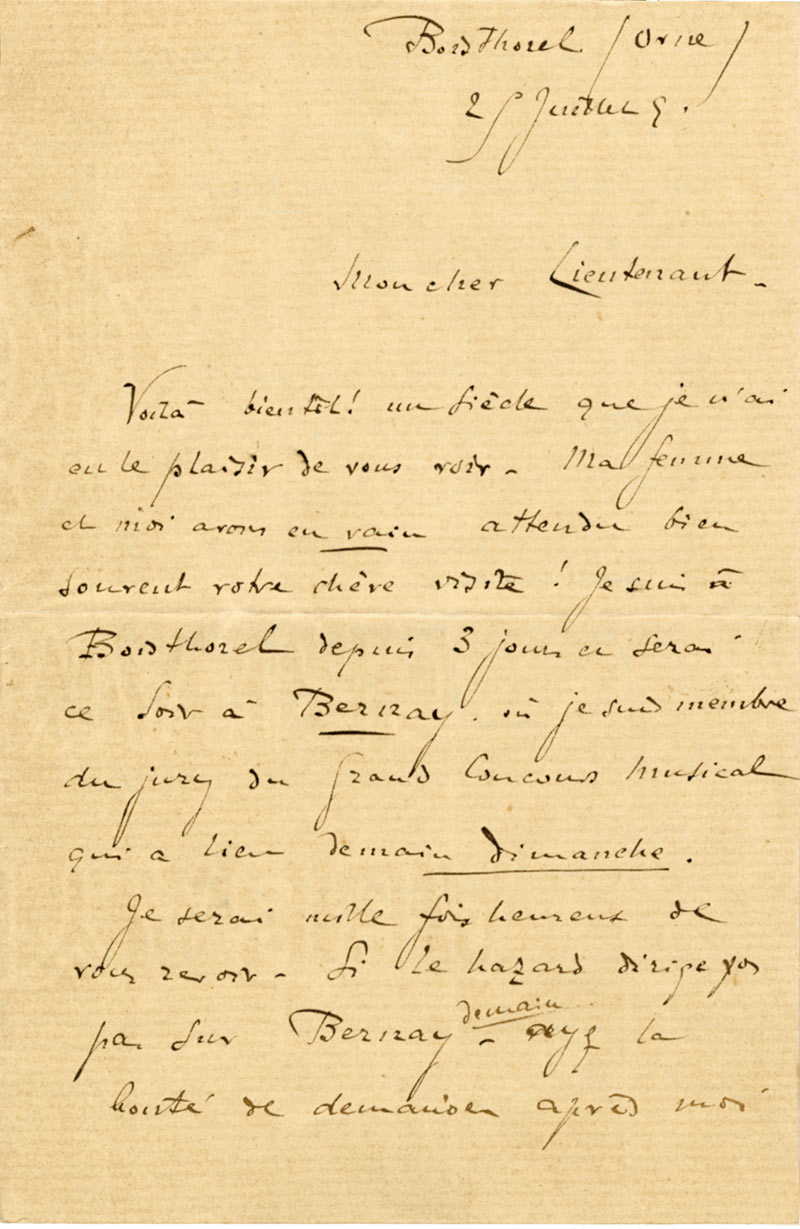 Boisthorel (Orne)
25 Juillet 9.
Mon cher Lieutenant -
Voilà bientôt! un siècle que je n'ai
eu le plaisir de vous voir - Ma femme
et moi avons en vain attendu bien
souvent votre chère visite ! Je suis à
Boisthorel depuis 3 jours et serai
ce soir à Bernay. où je suis membre
du jury du Grand Concours musical
qui a lieu demain dimanche.
Je serai mille fois heureux de
vous revoir - Si le hazard dirige vos
pas sur Bernay demain - ayez la
bonté de demander après moi